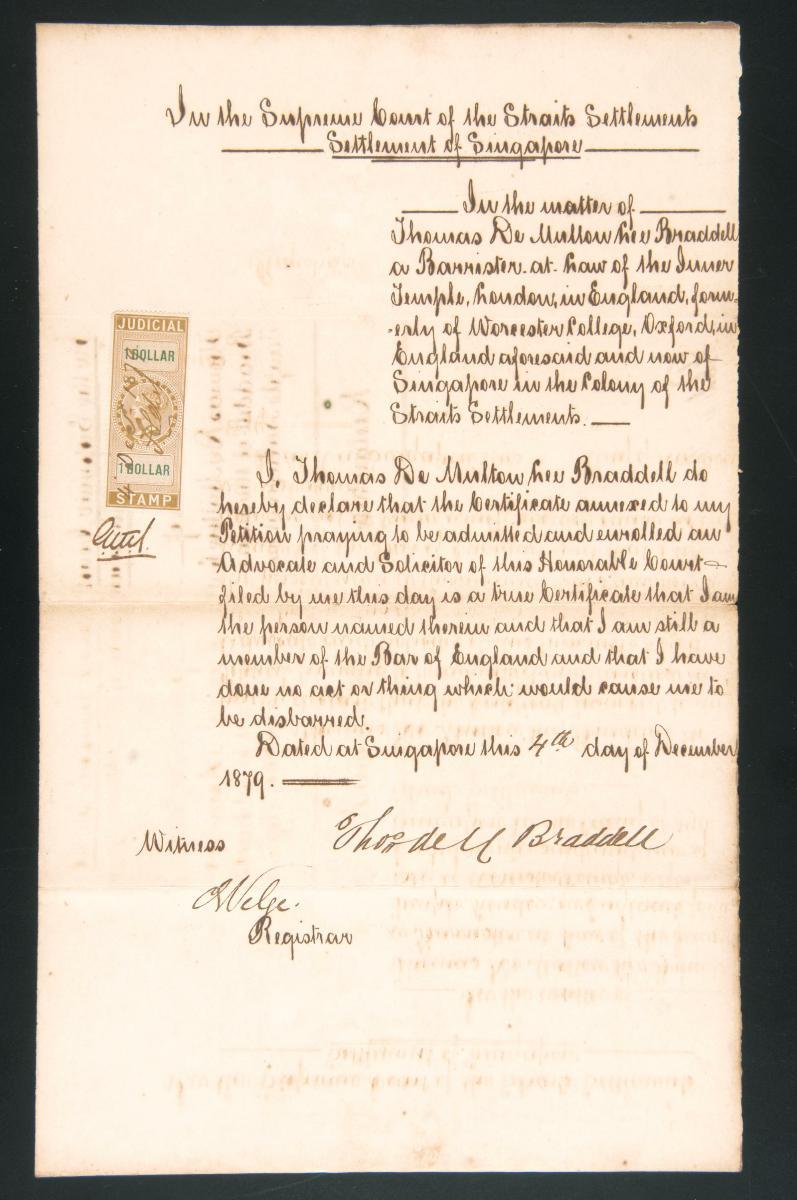 In the Supreme Court of the Straits Settlements
Settlement of Singapore
In the matter of
Thomas De Multon Lee Braddell
a Barrister-at-Law of the Inner
Temple, London, in England, form-
-erly of Worcester College, Oxford, in
England aforesaid and now of
Singapore in the Colony of the
Straits Settlements.
JUDICIAL
1 DOLLAR
1 DOLLAR
STAMP
I, Thomas De Multon Lee Braddell do
hereby declare that the Certificate annexed to my
Petition praying to be admitted and enrolled an
Advocate and Solicitor of this Honorable Court
filed by me this day is a true Certificate that I am
the person named therein and that I am still a
member of the Bar of England and that I have
done no act or thing which would cause me to
be disbarred.
Dated at Singapore this 4th day of December
1879.
Witness
Thos de M Braddell
Registrar